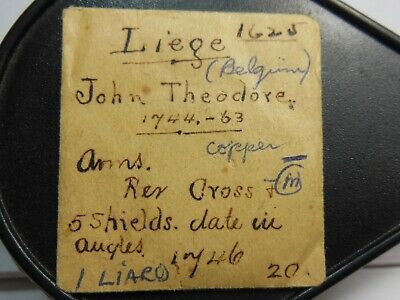 Liege 1625
(Belgium)
John Theodore.
1744.-63
copper
Arms.
Rev Cross &
m
5 Shields. date in
angles. 1746
1 LIARD 20.